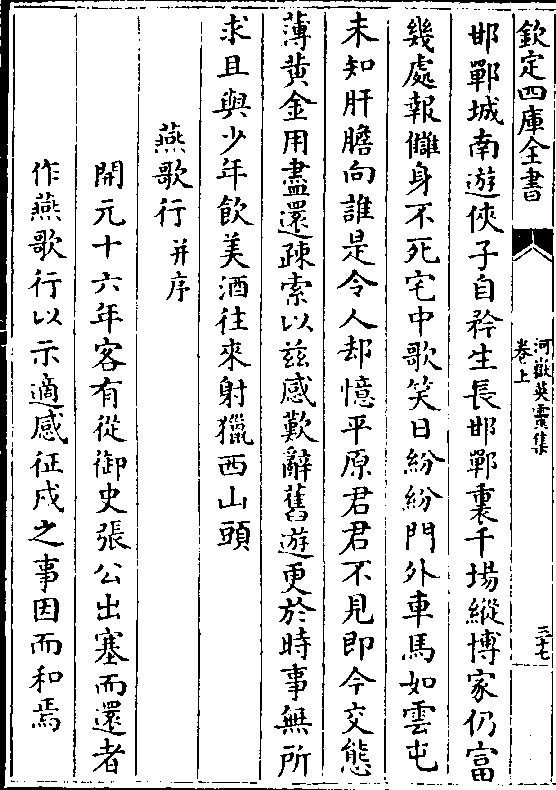 欽定四庫全書
河嶽英靈集
卷上
三十七
邯鄲城南遊俠子自矜生長邯鄲裏千場縱博家仍富
幾處報讎身不死宅中歌笑日紛紛門外車馬如雲屯
未知肝膽向誰是令人却憶平原君君不見即今交態
薄黄金用盡還踈索以兹感歎辭舊遊更於時事無所
求且與少年飲美酒往來射獵西山頭
燕歌行并序
開元十六年客有從御史張公出塞而還者
作燕歌行以示適感征戍之事因而和焉